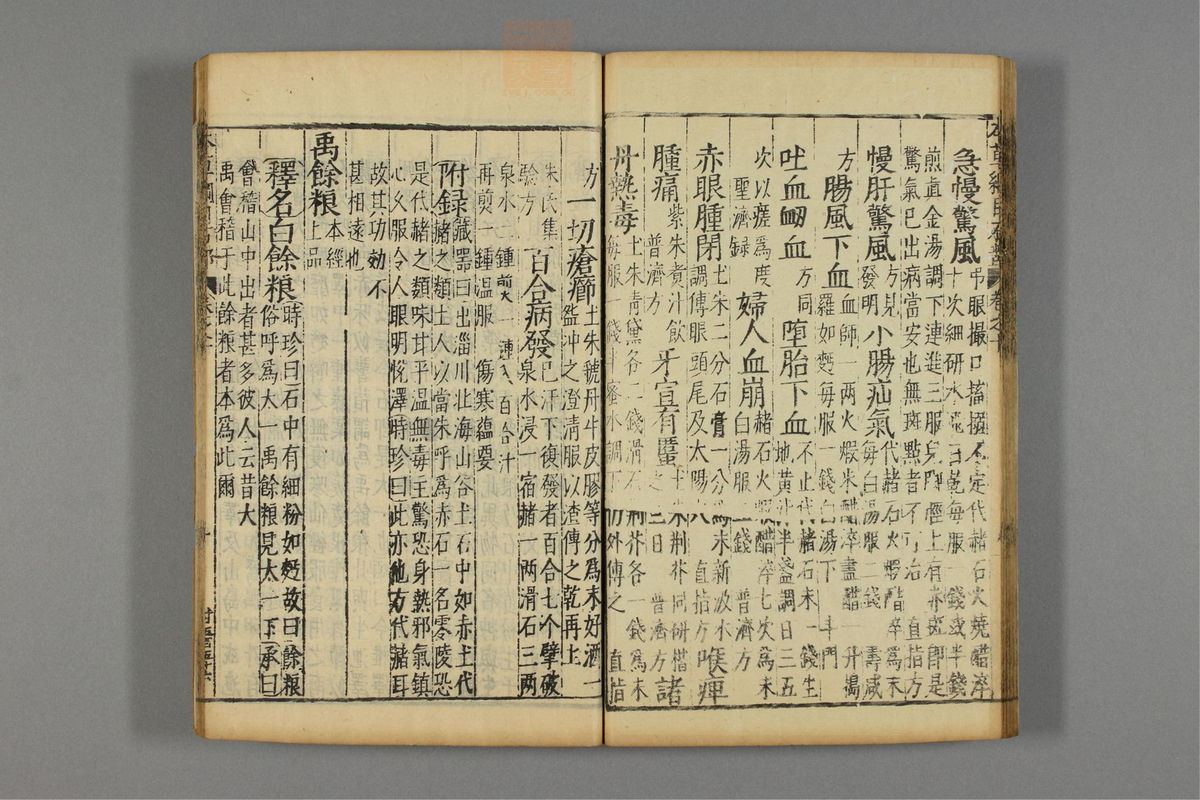 急慢驚風 吊眼撮口搐搦不定代赭石火燒醋淬
十次細研水飛日乾每服一錢或半錢
煎真金湯調下連進三服兒脚脛上有赤斑即是
驚氣已出病當安也無斑點者不可治 直指方
慢肝驚風 方見發明 小腸疝氣 代赭石火煅醋淬爲末
每白湯服二錢 壽域
方 腸風下血 血師一兩火煅米醋淬盡醋一升搗
羅如麪每服一錢白湯下 斗門
吐血衂血 方同 墮胎下血 不止代赭石末一錢生
地黃汁半盞調日三五
次以瘥爲度
聖濟録 婦人血崩 赭石火煅醋淬七次爲末
白湯服二錢 普濟方
赤眼腫閉 土朱二分石膏一分爲末新汲水
調傅眼頭尾及太陽穴 直指方 喉痺
腫痛 紫朱煑汁飲
普濟方 牙宣有䘌 土朱荆芥同研揩
之三日 普濟方 諸
丹熱毒 土朱青黛各二錢滑石荆芥各一錢爲末
每服一錢半蜜水調下仍外傅之 直指
方 一切瘡癤 土朱虢丹牛皮膠等分爲末好酒一
盌沖之澄清服以渣傅之乾再上
朱氏集
驗方 百合病發 已汗下復發者百合七个擘破
泉水浸一宿赭一兩滑石三兩
泉水二鍾煎一鍾入百合汁
再煎一鍾温服 傷寒蘊要
附録 藏器曰出淄川北海山谷土石中如赤土代
赭之類土人以當朱呼爲赤石一名零陵恐
是代赭之類味甘平温無毒主驚恐身熱邪氣鎮
心久服令人眼明悅澤時珍曰此亦他方代赭耳
故其功効不
甚相遠也
禹餘粮 本經
上品
釋名 白餘粮 時珍曰石中有細粉如麪故曰餘粮
俗呼爲太一禹餘粮見太一下承曰
會稽山中出者甚多彼人云昔大
禹會稽于此餘粮者本爲此爾